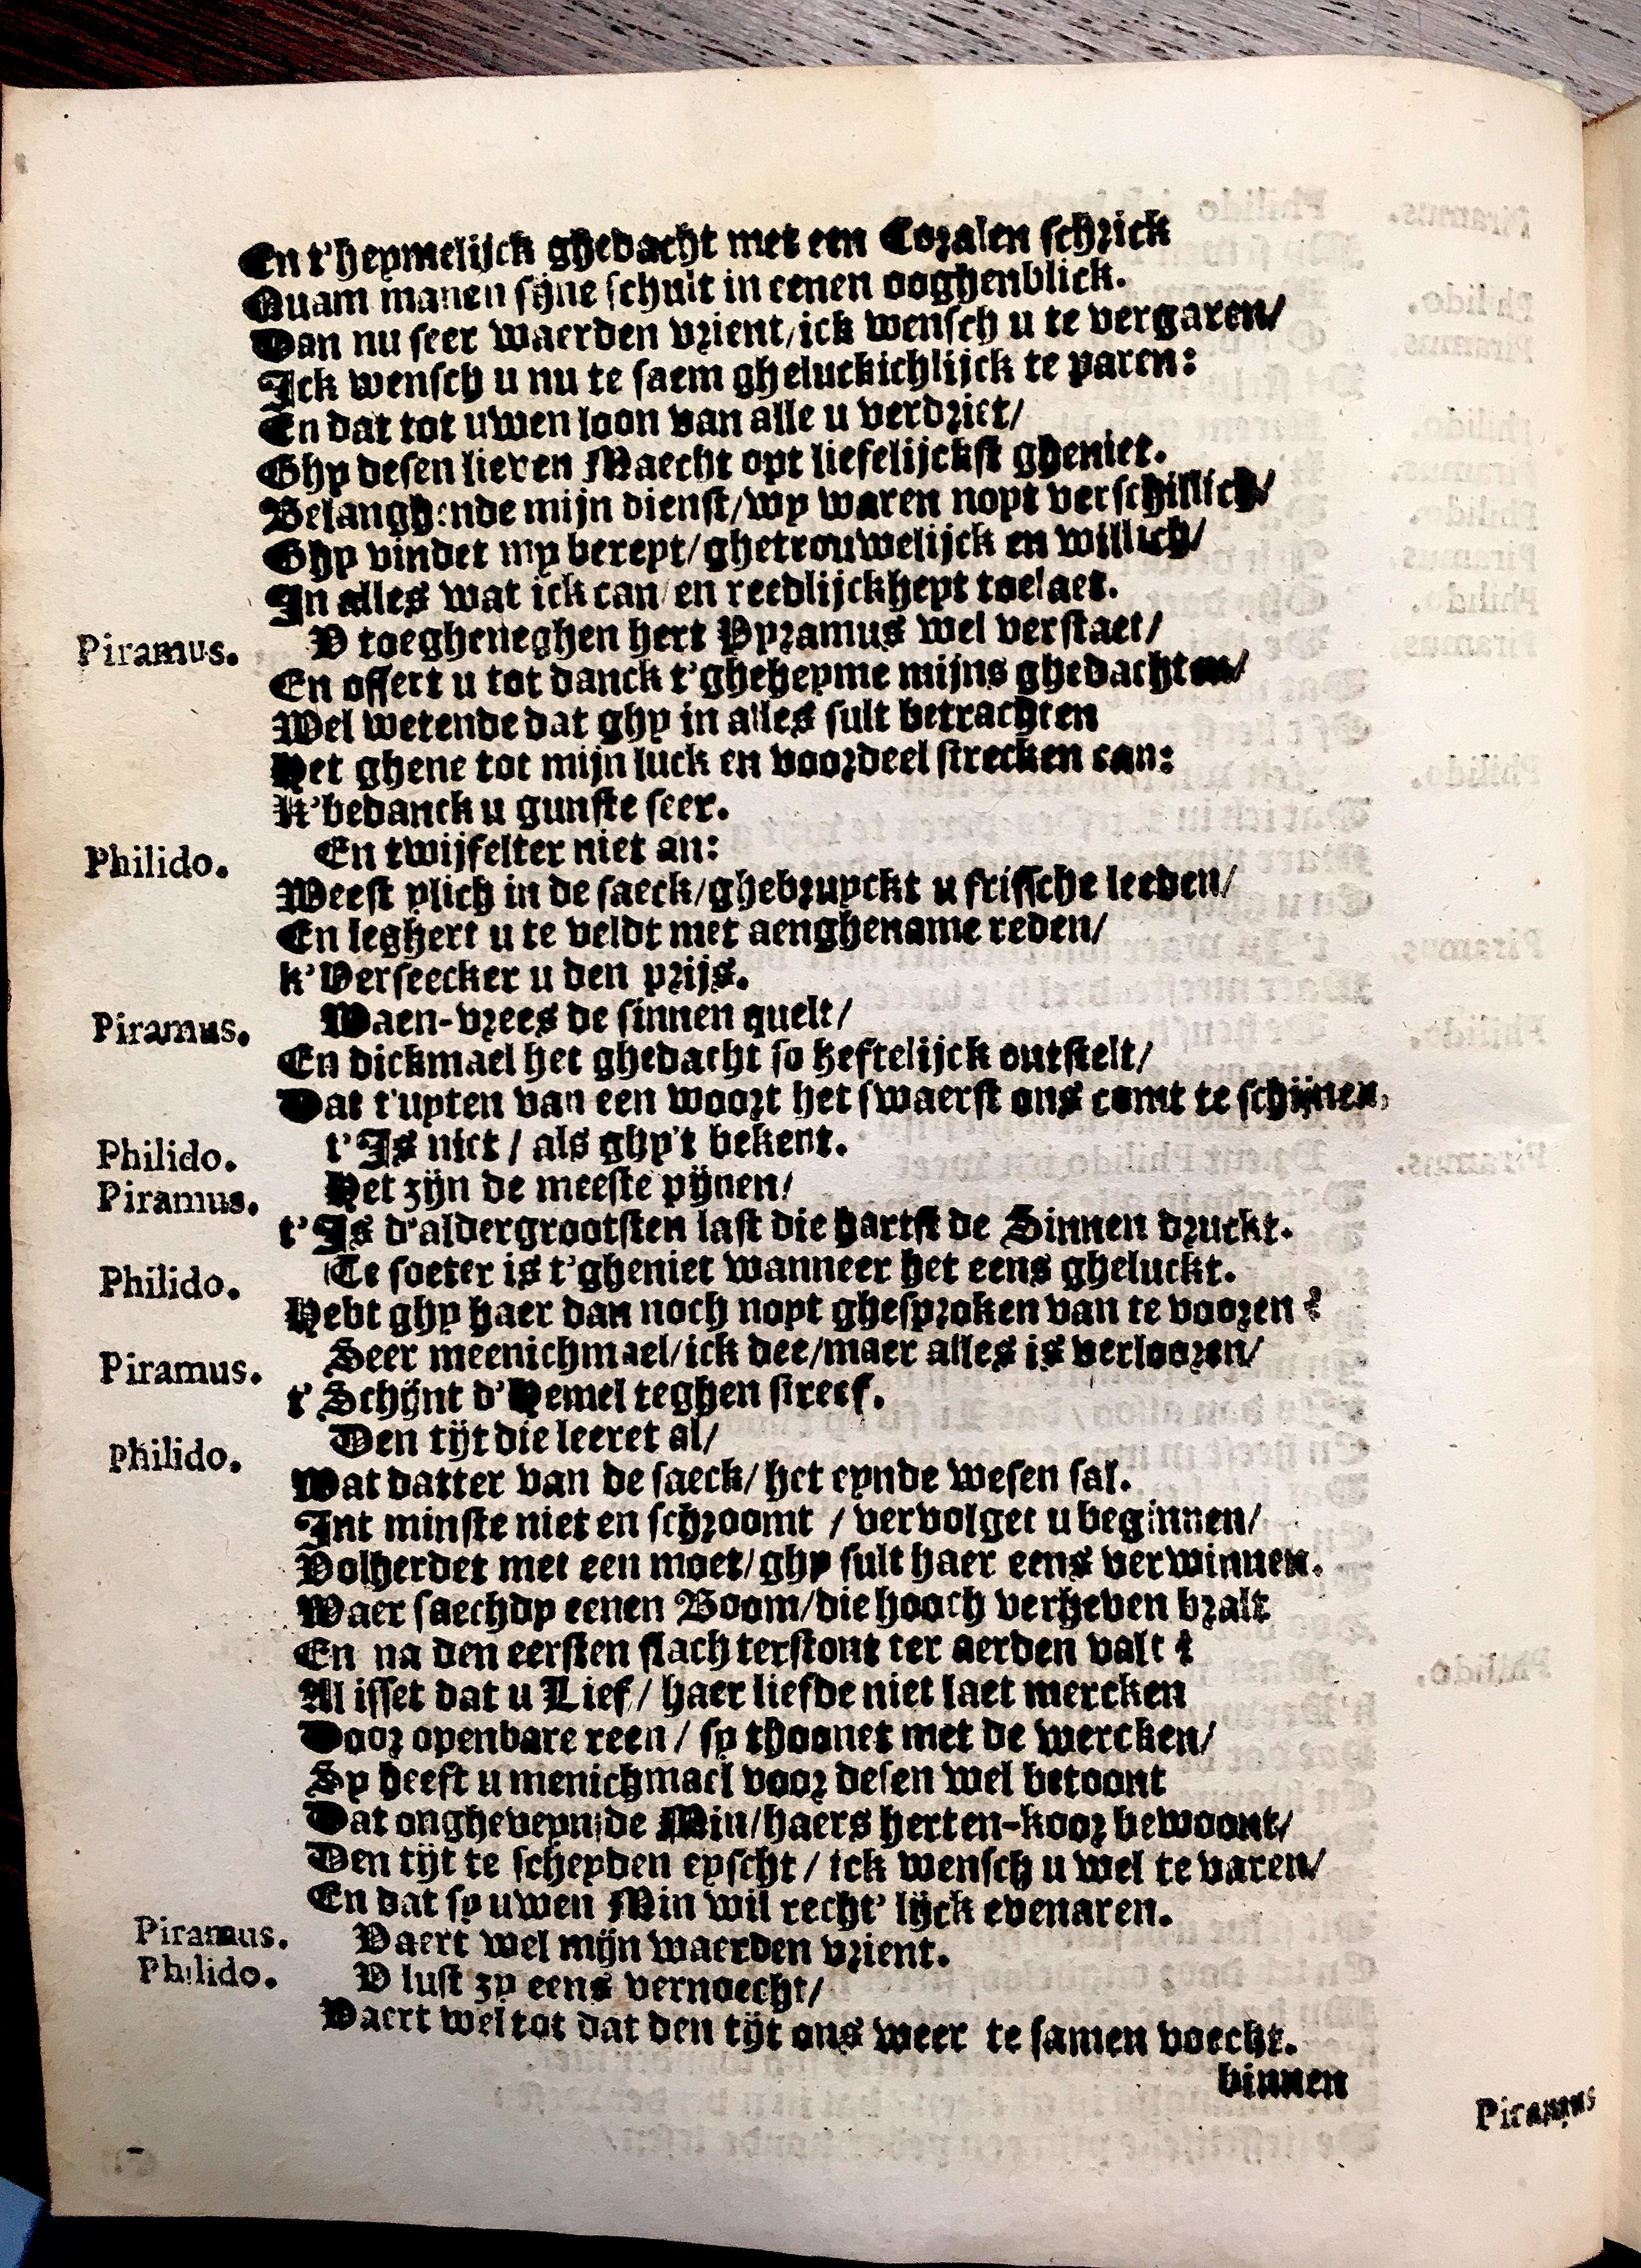 En t'heymelijck ghedacht met een Coralen schrick
Quam manen sijne schult in eenen ooghenblick.
Dan nu seer waerden vrient/ick wensch u te vergaren/
Ick wensch u nu te saem gheluckichlijck te paren:
En dat tot uwen loon van alle u verdriet/
Ghy desen lieven Maecht opt liefelijckst gheniet.
Belanghende mijn dienst/wy waren noyt verschillich/
Ghy vindet my bereyt/ghetrouwelijck en willich/
In alles wat ick can/en reedlijckheyt toelaet.
Piramus. V toegheneghen hert Pyramus wel verstaet/
En offert u tot danck t'gheheyme mijns ghedachten/
Wel wetende dat ghy in alles sult betrachten
Het ghene tot mijn luck en voordeel strecken can:
K'bedanck u gunste seer.
Philido. En twijfelter niet an:
Weest vlich in de saeck/ghebruyckt u frissche leeden/
En leghert u te veldt met aenghename reden/
k'Verseecker u den prijs.
Piramus. Waen-vrees de sinnen quelt/
En dickmael het ghedacht so heftelijck ontstelt/
Dat t'uyten van een woort het swaerst ons comt te schijnen,
Philido. t'Is niet / als ghy't bekent.
Piramus. Het zijn de meeste pijnen/
t'Is d'aldergrootsten last die hartst de Sinnen druckt.
Philido. Te soeter is t'gheniet wanneer het eens gheluckt.
Hebt ghy haer dan noch noyt ghesproken van te vooren?
Piramus. Seer meenichmael/ick dee/maer alles is verlooren/
t'Schijnt d'Hemel teghen streef.
Philido. Den tijt die leeret al/
Wat datter van de saeck/het eynde wesen sal.
Int minste niet en schroomt / vervolget u beginnen/
Volherdet met een moet/ghy sult haer eens verwinnen.
Waer saechdy eenen Boom/die hooch verheven bralt
En na den eersten slach terstont ter aerden valt?
Al isset dat u Lief/ haer liefde niet laet mercken
Door openbare reen / sy thoonet met de wercken/
Sy heeft u menichmael voor desen wel betoont
Dat ongheveynsde Min/haers herten-koor bewoont/
Den tijt te scheyden eyscht / ick wensch u wel te varen/
En dat sy uwen Min wil recht'lijck evenaren.
Piramus. Vaert wel mijn waerden vrient.
Philido. V lust zy eens vernoecht/
Vaert wel tot dat den tijt ons weer te samen voecht.
binnen
Piramus